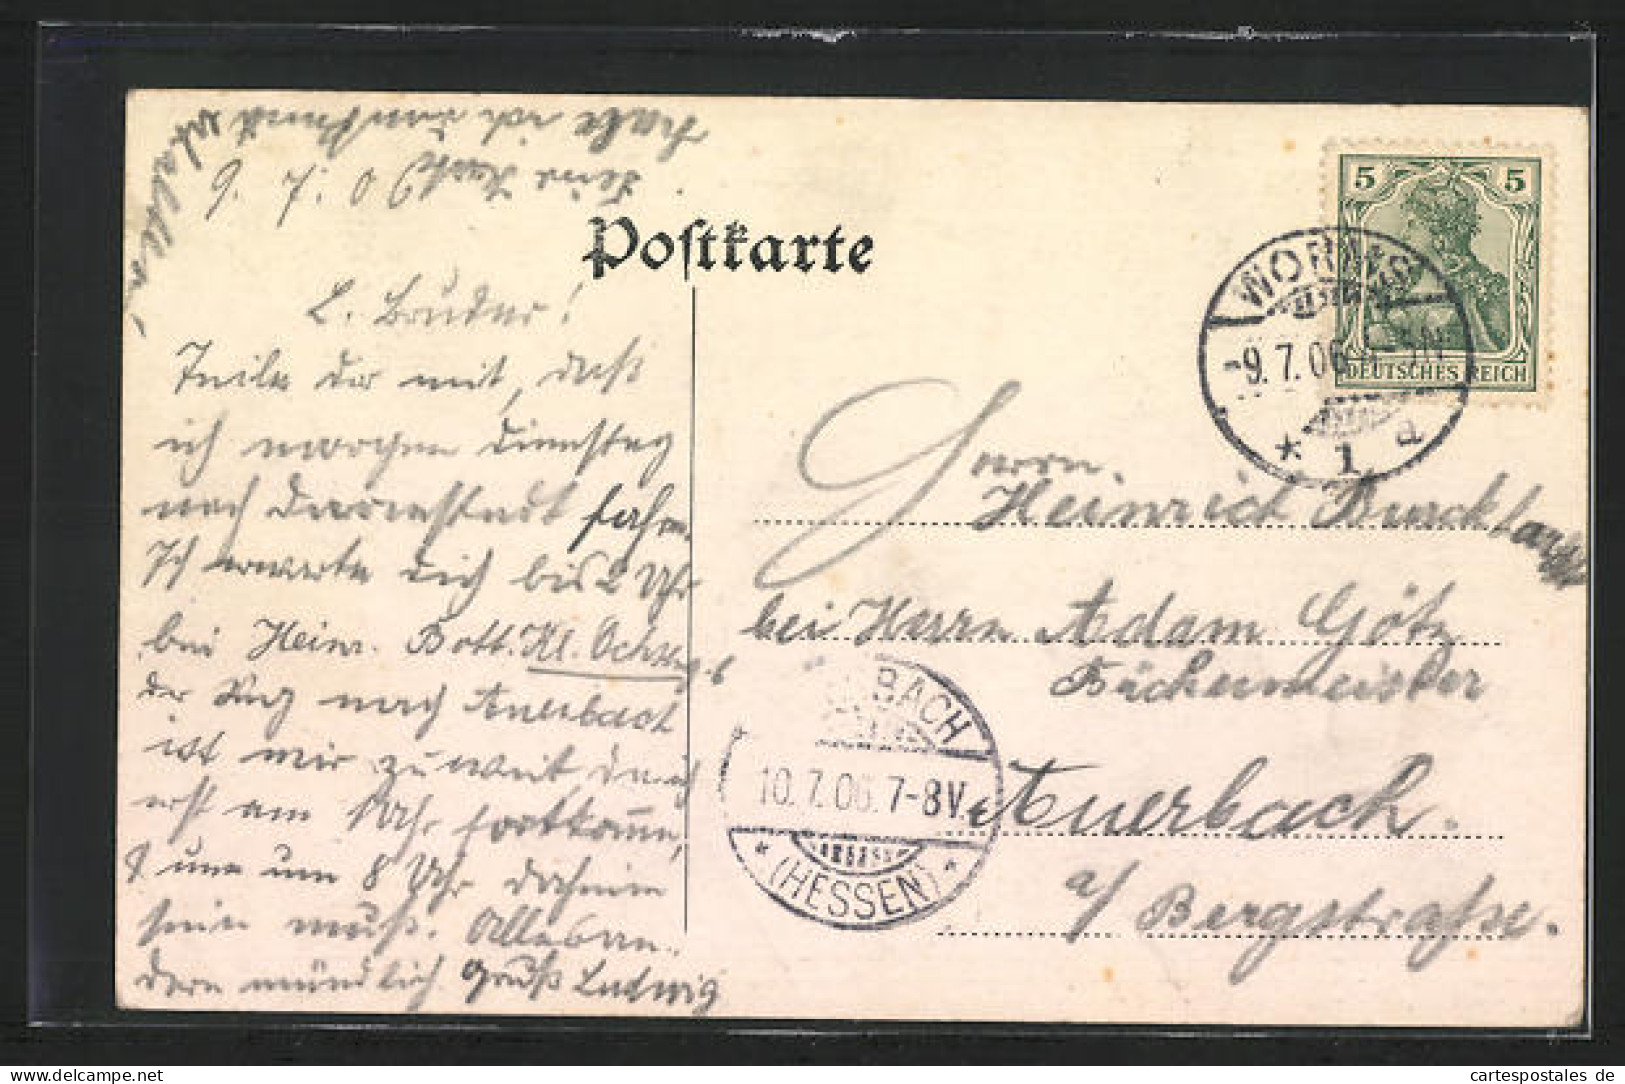 Postkarte
5 5
DEUTSCHES REICH
WORMS
-9.7.06.
* 1 a
Herrn.
Heinrich
bei Herrn Adam Götz
Bäckermeister
Auerbach.
a/ Bergstraße.
BACH
10.7.06.7-8V.
* (HESSEN) *
L. Bruder!
Teile dir mit, daß
ich morgen Dienstag
nach Darmstadt fahre.
Ich erwarte dich bis 2 Uhr
bei Heinr. Bott. Kl. Ochseng. 6
der Weg nach Auerbach
ist mir zu weit, da ich
erst am fortkomme,
& um 8 Uhr daheim
sein muß. Alles an-
dere mündlich. Gruß Ludwig
9. 7. 06
Deine Karte
habe ich dankend
erhalten!
cartespostales de